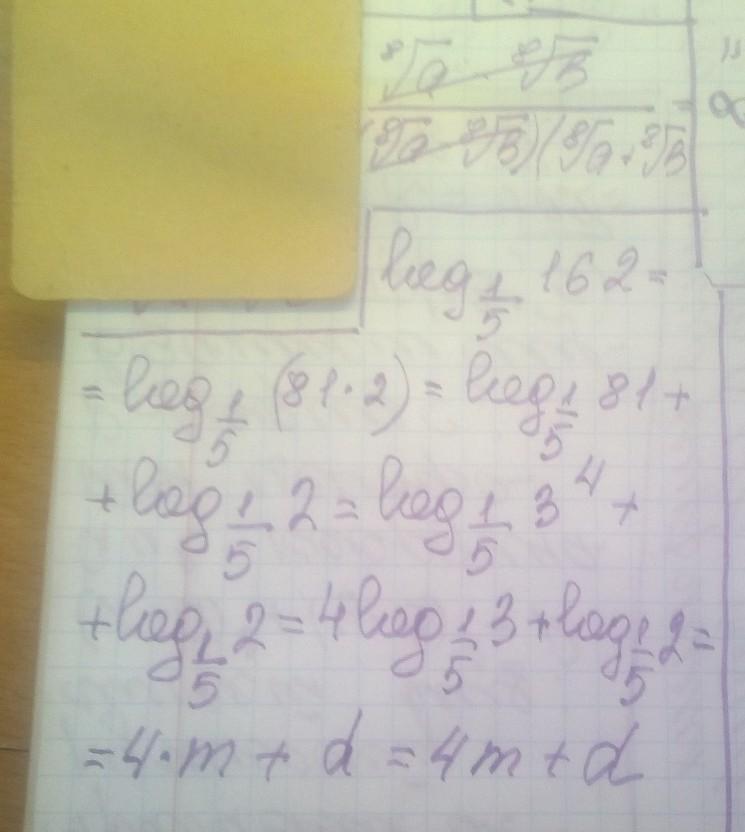 ⁸√a - ⁸√b
(⁸√a - ⁸√b)(⁸√a + ⁸√b =
log_{1/5} 162 =
= log_{1/5} (81·2) = log_{1/5} 81 +
+ log_{1/5} 2 = log_{1/5} 3⁴ +
+ log_{1/5} 2 = 4 log_{1/5} 3 + log_{1/5} 2 =
= 4·m + d = 4m + d